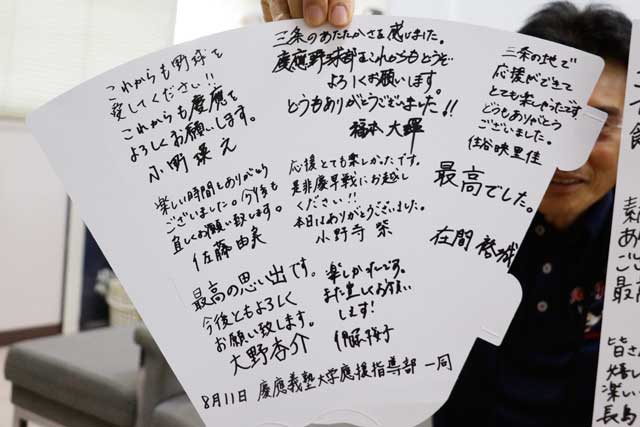 これからも野球を
愛してください!!
これからも慶應を
よろしくお願いします。
三条のあたたかさを感じました。
慶應野球部をこれからもどうぞ
よろしくお願いします。
どうもありがとうございました!!
福本 大輝
三条の地で
応援ができて
とても楽しかったです
どうもありがとう
ございました。
住谷映里佳
楽しい時間をありがとう
ございました。今後も
宜しくお願い致します。
佐藤 由実
応援とても楽しかったです。
是非慶早戦にお越し
ください!!
本日はありがとうございました。
小野寺 栞
最高でした。
最高の思い出です。
今後ともよろしく
お願い致します。
大野杏介
楽しかったです。
また宜しくお願い
します!
8月11日 慶應義塾大学應援指導部 一同
皆さ
嬉し
楽し
長島